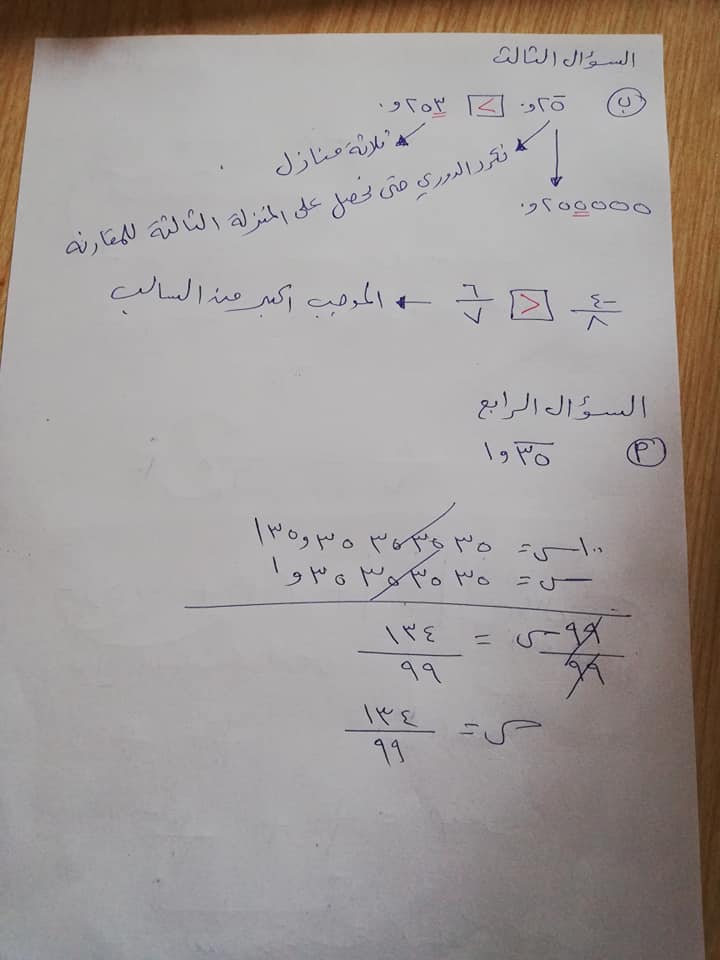 السؤال الثالث
ب) ٠و٢٥̅ > ٠و٢٥٣
ثلاثة منازل
نكرر الدوري حتى نحصل على المنزلة الثالثة للمقارنه
٠و٢٥٥٥٥٥
-٤/٨ < ٦/٧ ← الموجب اكبر من السالب
السؤال الرابع
م) ١و٣̅٥̅
١٠٠س = ١٣٥و٣٥ ٣٥ ٣٥ ٣٥
س = ١و٣٥ ٣٥ ٣٥ ٣٥
٩٩س/٩٩ = ١٣٤/٩٩
س = ١٣٤/٩٩